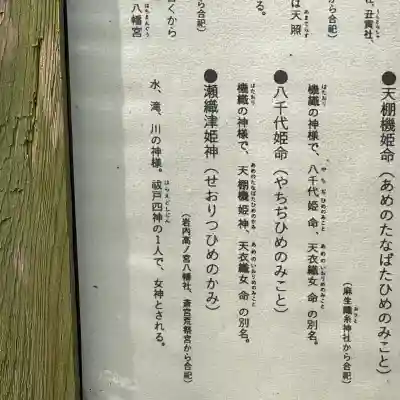 社、丑寅社、
から合祀)
は天照
る。
ら合祀)
くから
八幡宮
●天棚機姫命(あめのたなばたひめのみこと)
(麻生織糸神社から合祀)
機織の神様で、八千代姫命、天衣織女命の別名。
●八千代姫命(やちぢひめのみこと)
機織の神様で、天棚機姫神、天衣織女命の別名。
●瀬織津姫神(せおりつひめのかみ)
(岩内高ノ宮八幡社、斎宮荒祭宮から合祀)
水、滝、川の神様。祓戸四神の1人で、女神とされる。